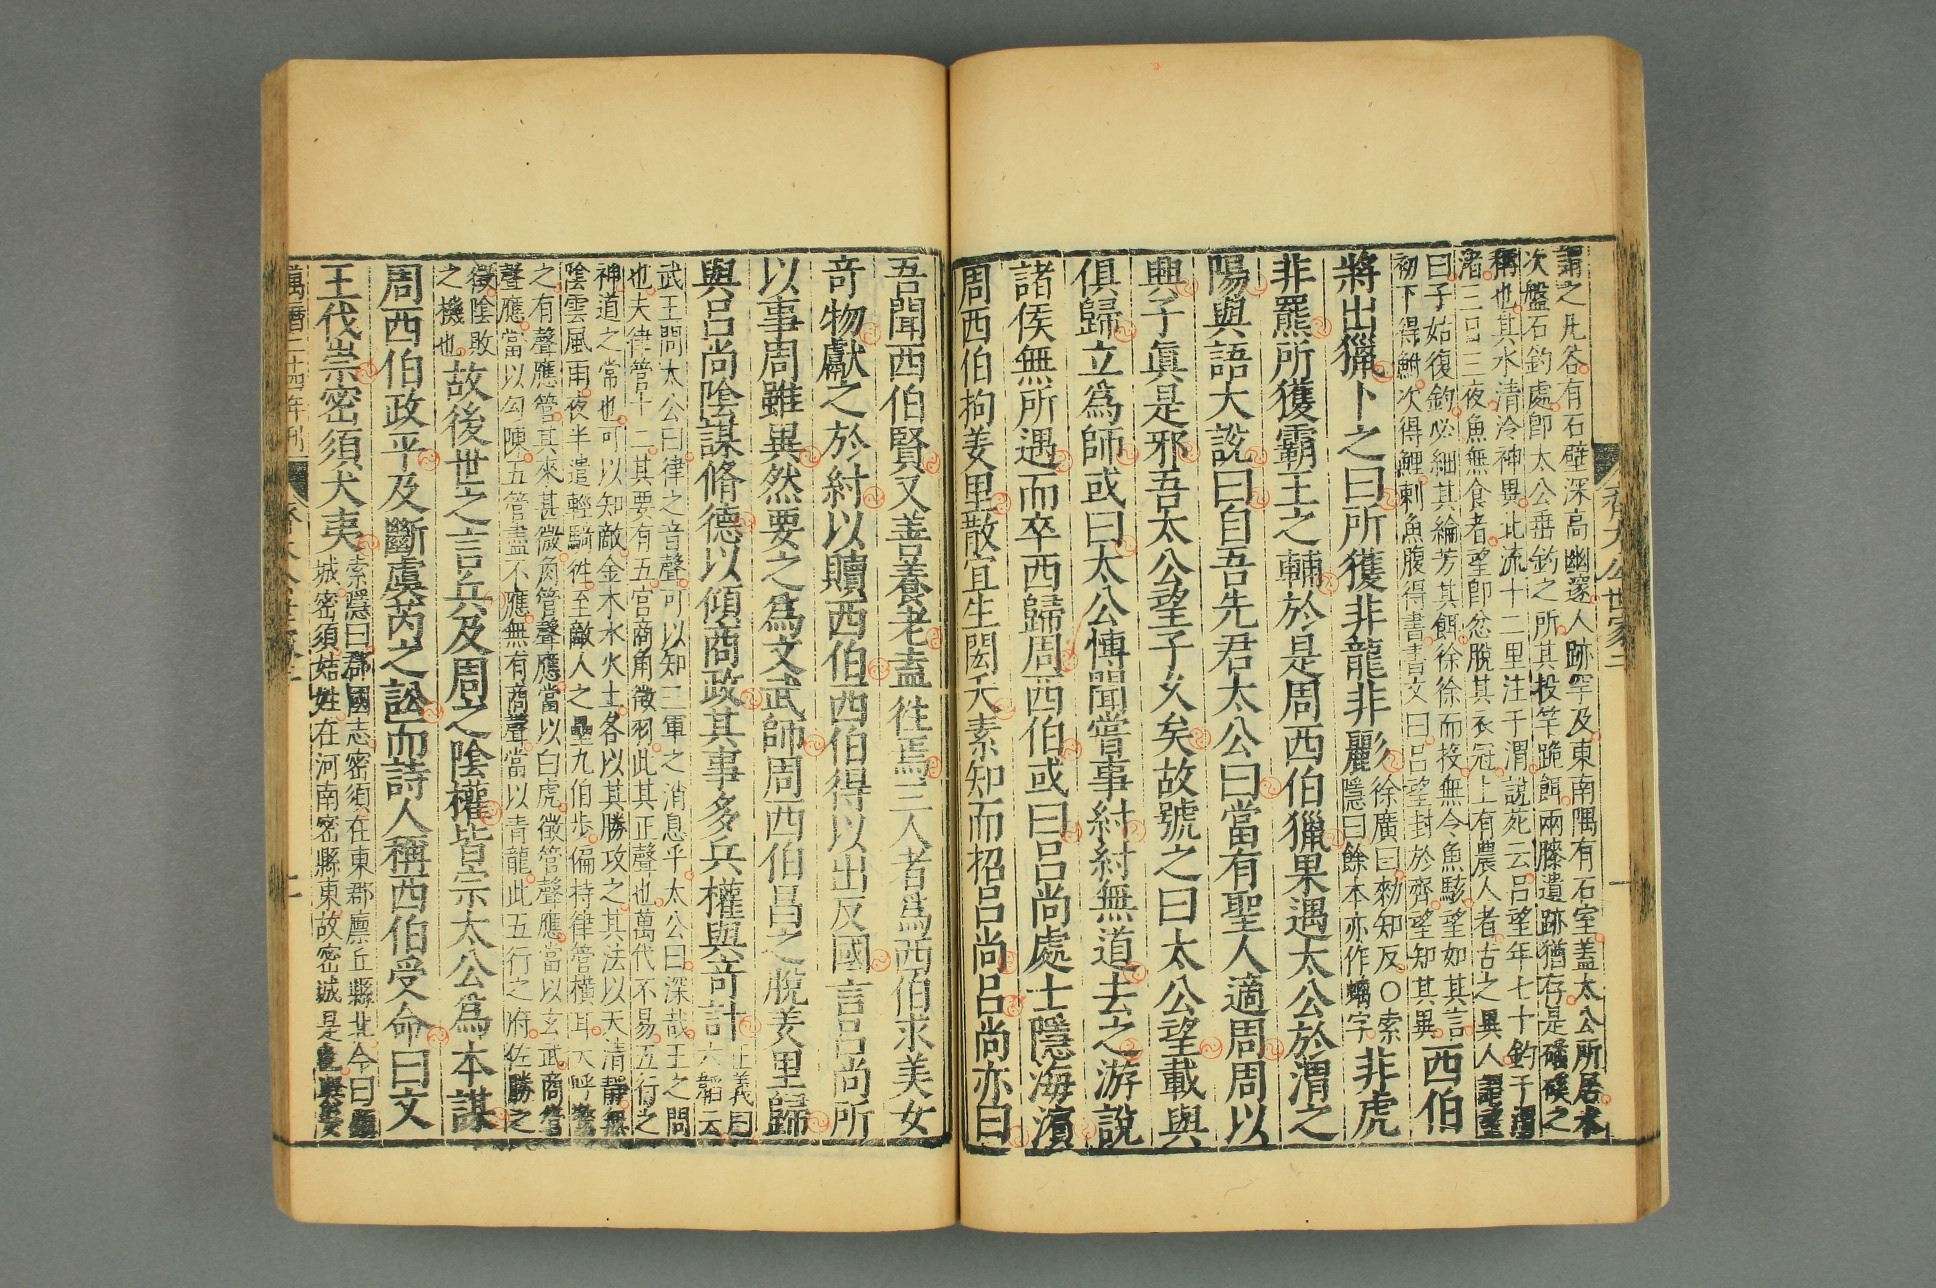 謂之凡谷有石壁深高幽邃人跡罕及東南隅有石室蓋太公所居也水
次盤石釣處即太公垂釣之所其投竿跪餌兩膝遺跡猶存是磻磎之
稱也其水清泠神異北流十二里注于渭說苑云呂望年七十釣于渭
渚三日三夜魚無食者望即忿脫其衣冠上有農人者古之異人謂望
曰子姑復釣必細其綸芳其餌徐徐而投無令魚駭望如其言
初下得鮒次得鯉刺魚腹得書書文曰呂望封於齊望知其異西伯
將出獵卜之曰所獲非龍非彲徐廣曰勑知反○索
隱曰餘本亦作螭字非虎
非羆所獲霸王之輔於是周西伯獵果遇太公於渭之
陽與語大說曰自吾先君太公曰當有聖人適周周以
興子真是邪吾太公望子久矣故號之曰太公望載與
俱歸立為師或曰太公博聞嘗事紂紂無道去之游說
諸侯無所遇而卒西歸周西伯或曰呂尚處士隱海濱
周西伯拘羑里散宜生閎夭素知而招呂尚呂尚亦曰
齊太公世家二
一
吾聞西伯賢又善養老盍往焉三人者為西伯求美女
奇物獻之於紂以贖西伯西伯得以出反國言呂尚所
以事周雖異然要之為文武師周西伯昌之脫羑里歸
與呂尚陰謀脩德以傾商政其事多兵權與奇計正義曰
六韜云
武王問太公曰律之音聲可以知三軍之消息乎太公曰深哉王之問
也夫律管十二其要有五宮商角徵羽此其正聲也萬代不易五行之
神道之常也可以知敵金木水火土各以其勝攻之其法以天清靜無
陰雲風雨夜半遣輕騎往至敵人之壘九伯步偏持律管橫耳大呼驚
之有聲應管其來甚微角管聲應當以白虎徵管聲應當以玄武商管
聲應當以勾陳五管盡不應無有商聲當以青龍此五行之府佐勝之
徵陰敗
之機也故後世之言兵及周之陰權皆宗太公為本謀
周西伯政平及斷虞芮之訟而詩人稱西伯受命曰文
王伐崇密須犬夷索隱曰郡國志密須在東郡廩丘縣北今曰顧
城密須姞姓在河南密縣東故密城是也與安
萬曆二十四年刊
齊太公世家二
二